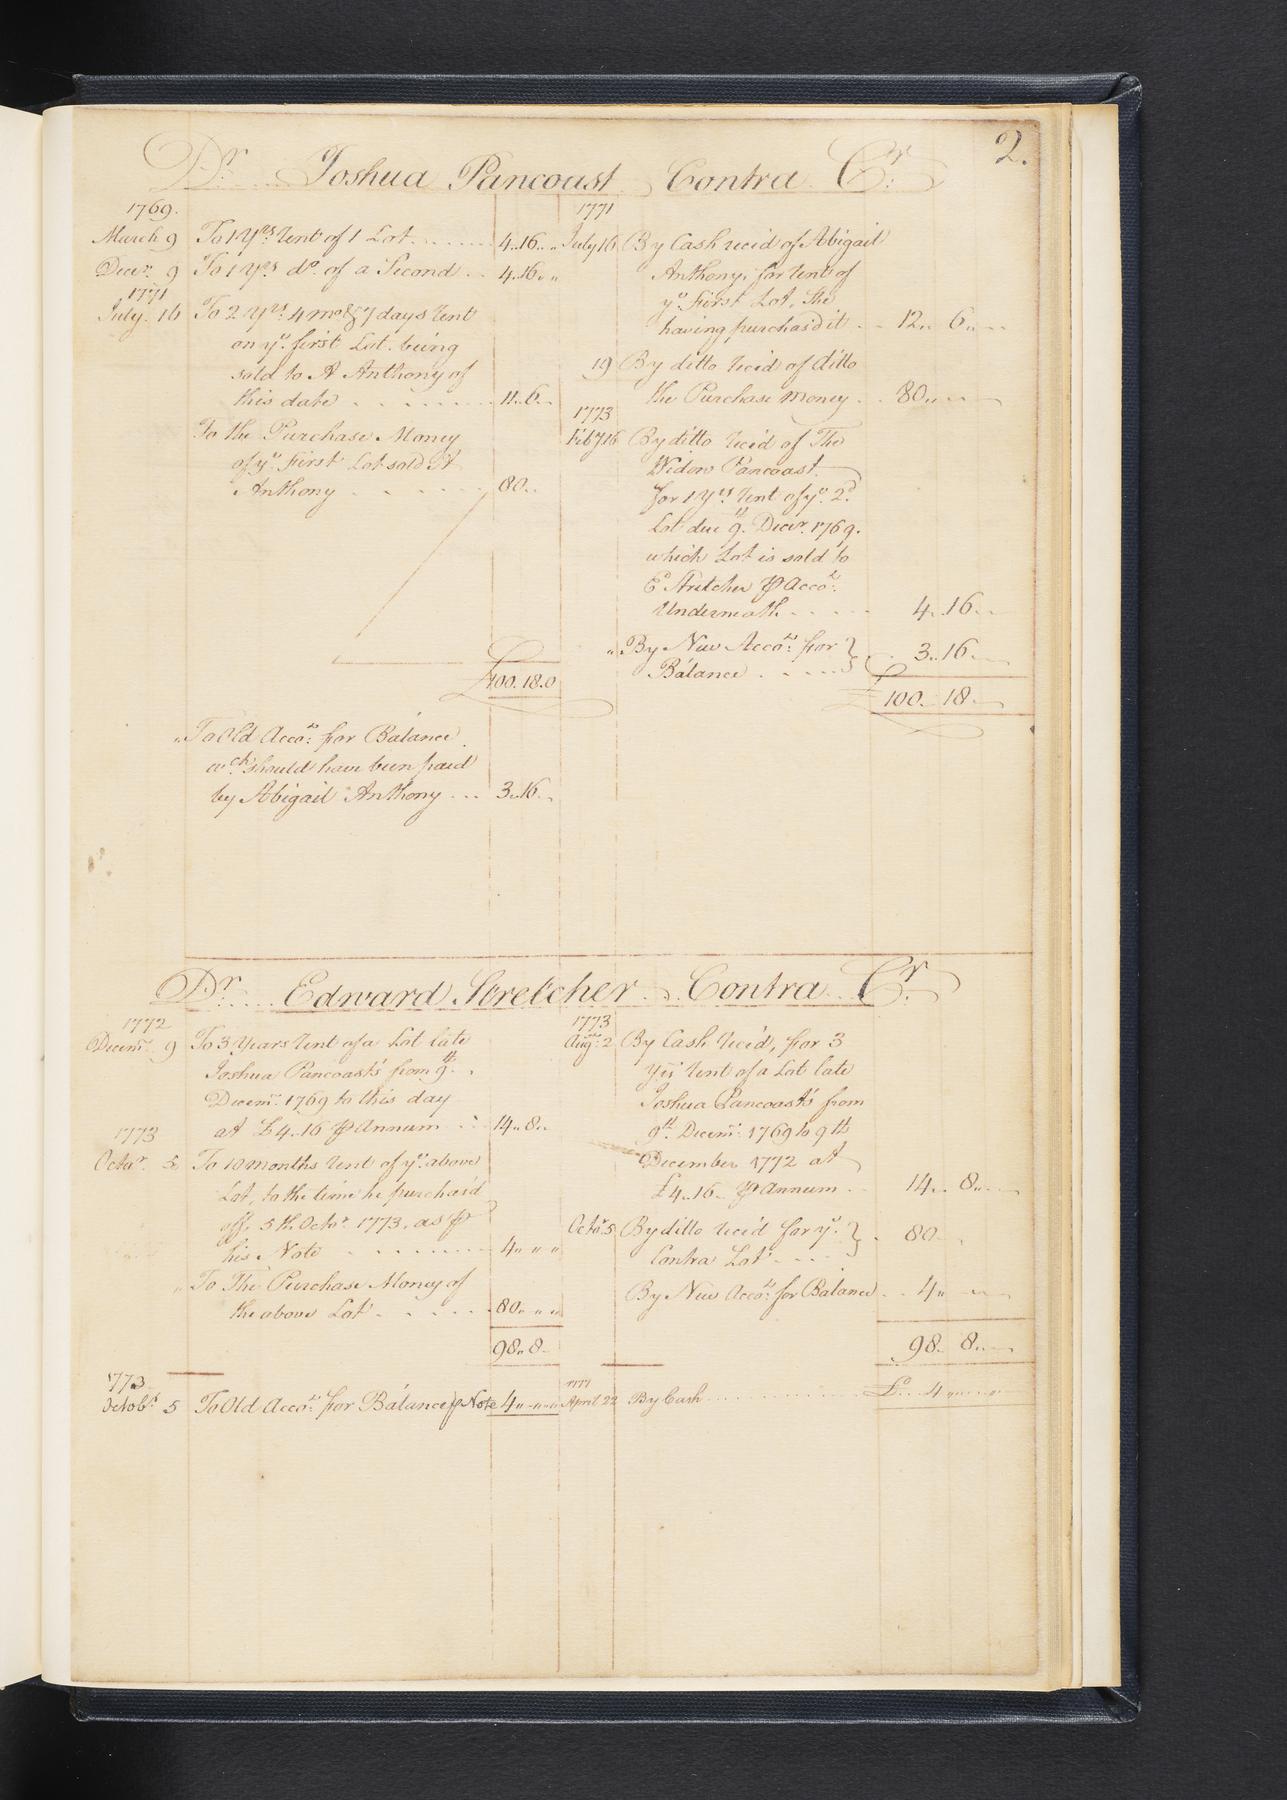 2.
Dr. Joshua Pancoast Contra Cr.
1769.
March 9 To 1 Yrs. Rent of 1 Lot 4..16..
Decr. 9 To 1 Yrs do. of a Second 4..16..
1771
July 16 To 2 Yrs. 4 mo. & 7 days Rent
on ye. first Lot. being
sold to A Anthony of
this date 11..6..
To the Purchase Money
of ye. First Lot sold A
Anthony 80..
£100.18.0
„ To Old Acco.t for Balance
wch. should have been paid
by Abigail Anthony 3..16..
1771
July 16 By Cash recd of Abigail
Anthony, for Rent of
ye. First Lot, She
having purchasd it 12.. 6..
19 By ditto Recd of ditto
the Purchase Money 80..
1773
Feby 16 By ditto Recd of The
Widow Pancoast
for 1 Yrs. Rent of ye. 2d.
Lot due 9th. Decr. 1769.
which Lot is sold to
E Stretcher ⅌ Acco.t
Underneath 4..16..
„ By New Acco.t for }
Balance } 3..16..
£ 100.. 18..
Dr. Edward Stretcher Contra Cr.
1772
Decemr. 9 To 3 Years Rent of a Lot late
Joshua Pancoast's from 9th.
Decemr. 1769 to this day
at £4..16 ⅌ Annum 14..8..
1773
Octor. 5 To 10 months Rent of ye. above
Lot, to the time he purchas'd
off, 5th Octor. 1773. as ⅌
his Note 4.. „ „
„ To The Purchase Money of
the above Lot 80.. „ „
98..8
1773
Octobr. 5 To Old Acco.t for Balance ⅌ Note 4.. „ „
1773
Augt. 2 By Cash Recd, for 3
Yrs Rent of a Lot late
Joshua Pancoast's from
9th. Decemr. 1769 to 9th
December 1772 at
£4..16.. ⅌ Annum 14.. 8..
Octor 5 By ditto Recd for ye. }
Contra Lot } 80
By New Acco.t for Balance 4..
98.. 8..
1777
April 22 By Cash £ 4..